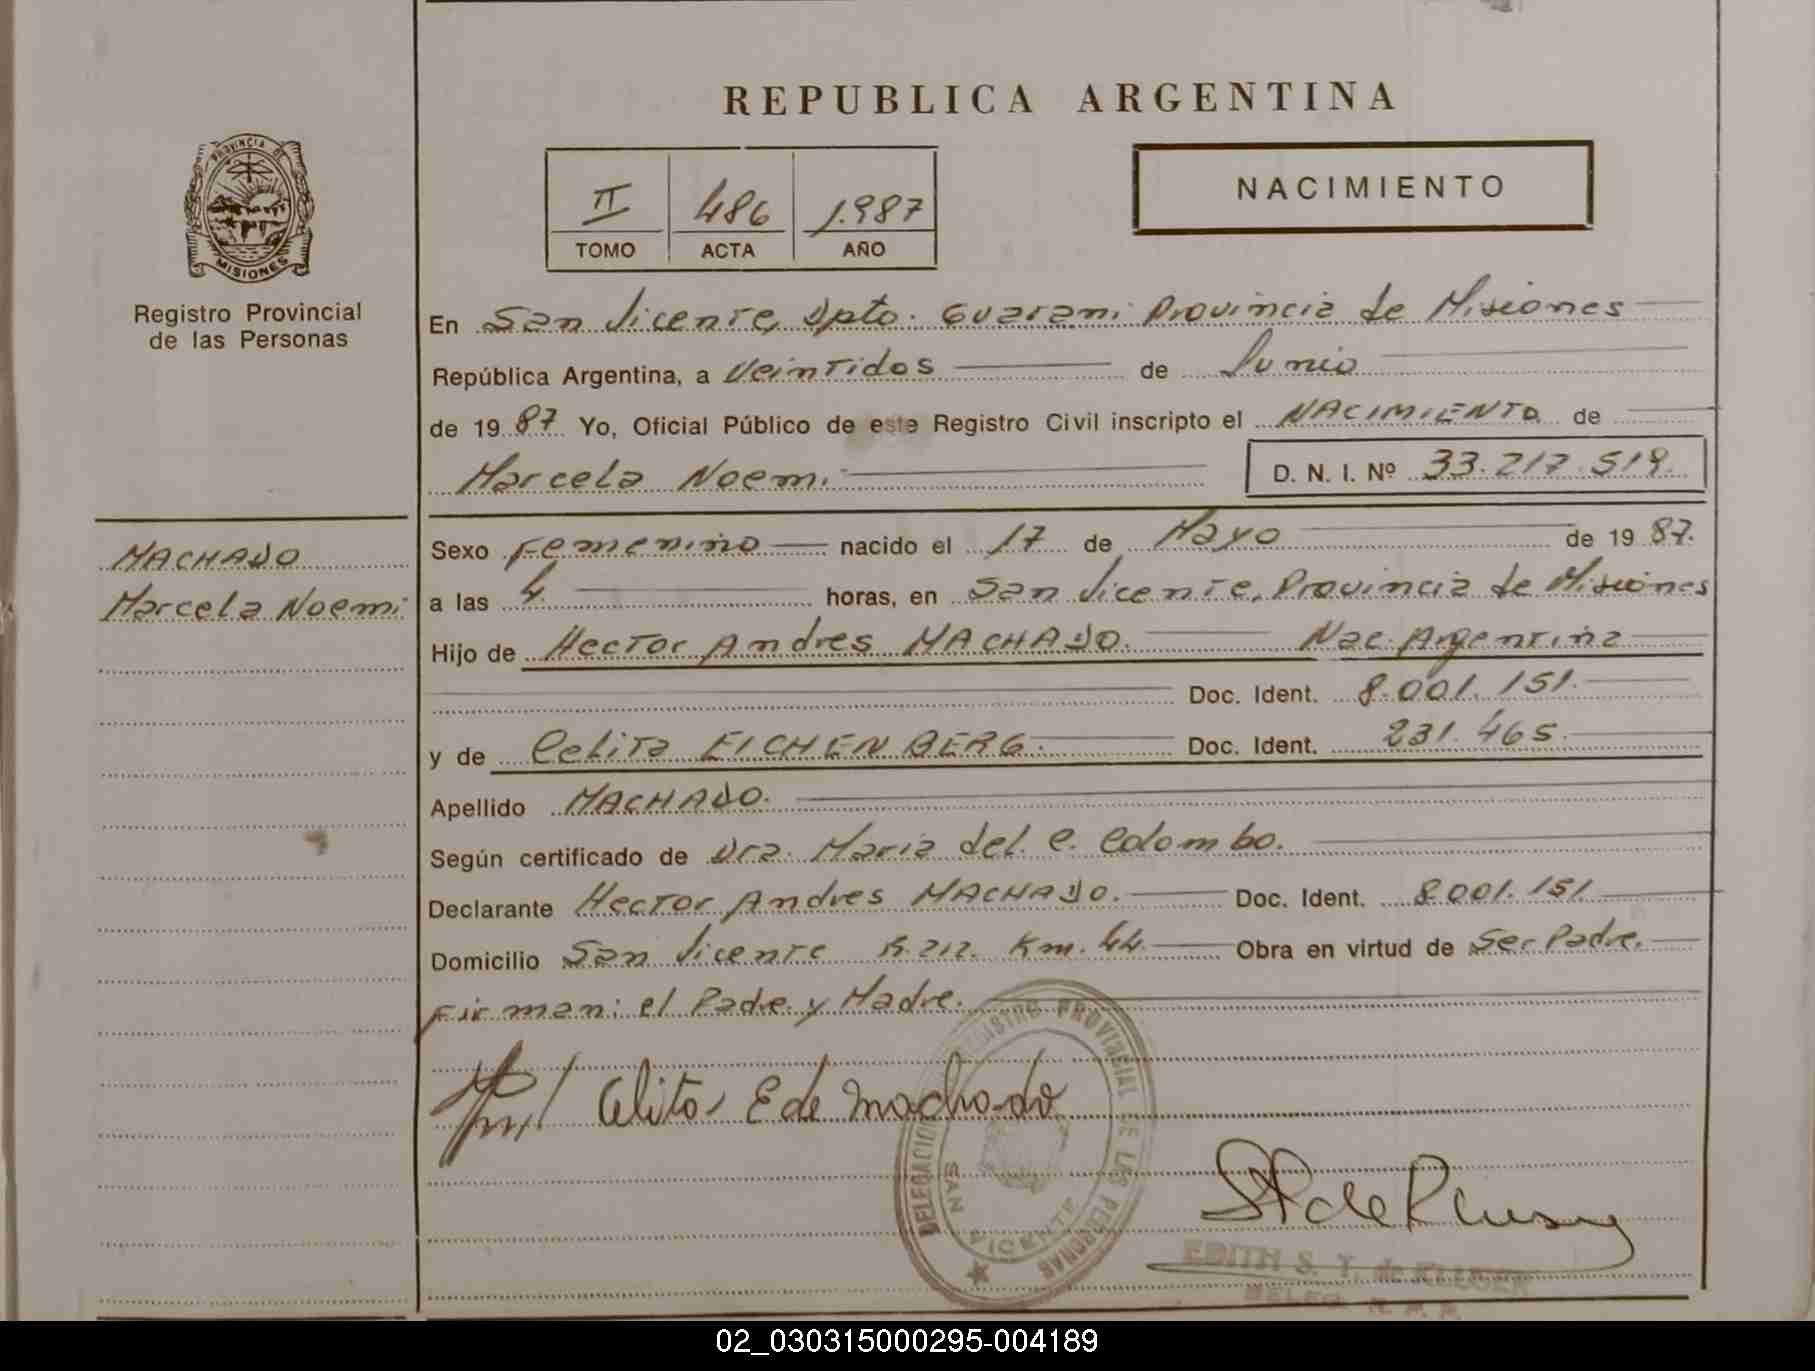 REPUBLICA ARGENTINA
PROVINCIA DE
MISIONES
Registro Provincial
de las Personas
II 486 1.987
TOMO ACTA AÑO
NACIMIENTO
En San Vicente, Dpto. Guarani Provincia de Misiones
República Argentina, a Veintidos de Junio
de 19 87 Yo, Oficial Público de este Registro Civil inscripto el NACIMIENTO de
Marcela Noemi
D. N. I. Nº 33.217.519.
MACHADO
Marcela Noemi
Sexo Femenino nacido el 17 de Mayo de 19 87.
a las 4 horas, en San Vicente, Provincia de Misiones
Hijo de Hector Andres MACHADO. Nac. Argentina
Doc. Ident. 8.001.151.
y de Celita EICHENBERG. Doc. Ident. 231.465.
Apellido MACHADO.
Según certificado de Dra. Maria del. C. Colombo.
Declarante Hector Andres MACHADO. Doc. Ident. 8.001.151.
Domicilio San Vicente R.212. Km. 44. Obra en virtud de Ser Padre.
Firman: el Padre y Madre.
Celita E de Machado
DELEGACION REGISTRO PROVINCIAL DE LAS PERSONAS
SAN VICENTE
EDITH S. T. de KLUSER
DELEG. R. P. P.
02_030315000295-004189